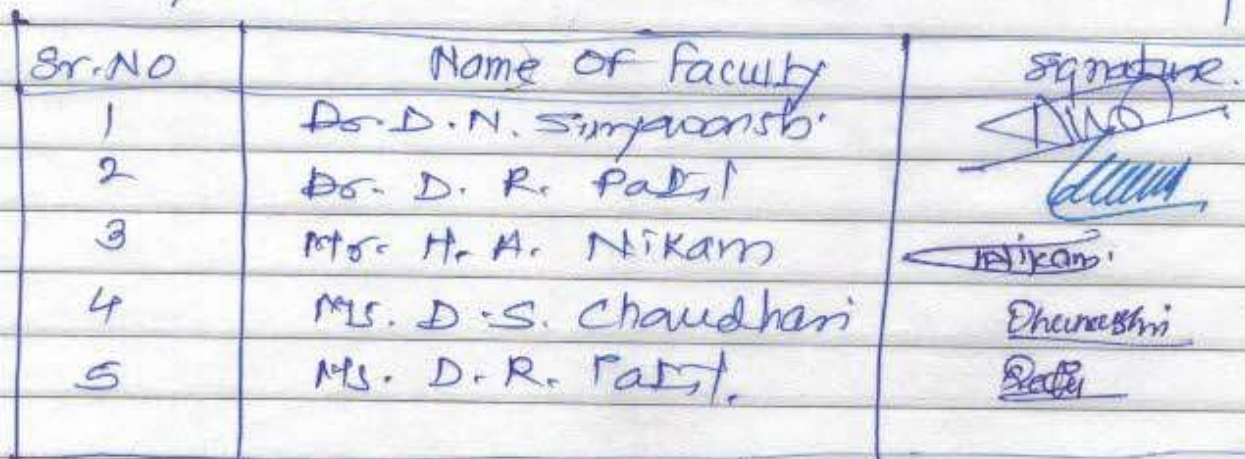 Sr.No Name of Faculty Signature.
1 Dr. D. N. Suryawanshi
2 Dr. D. R. Patil
3 Mr. H. A. Nikam Nikam.
4 Ms. D. S. Chaudhari Dhanashri
5 Ms. D. R. Patil.